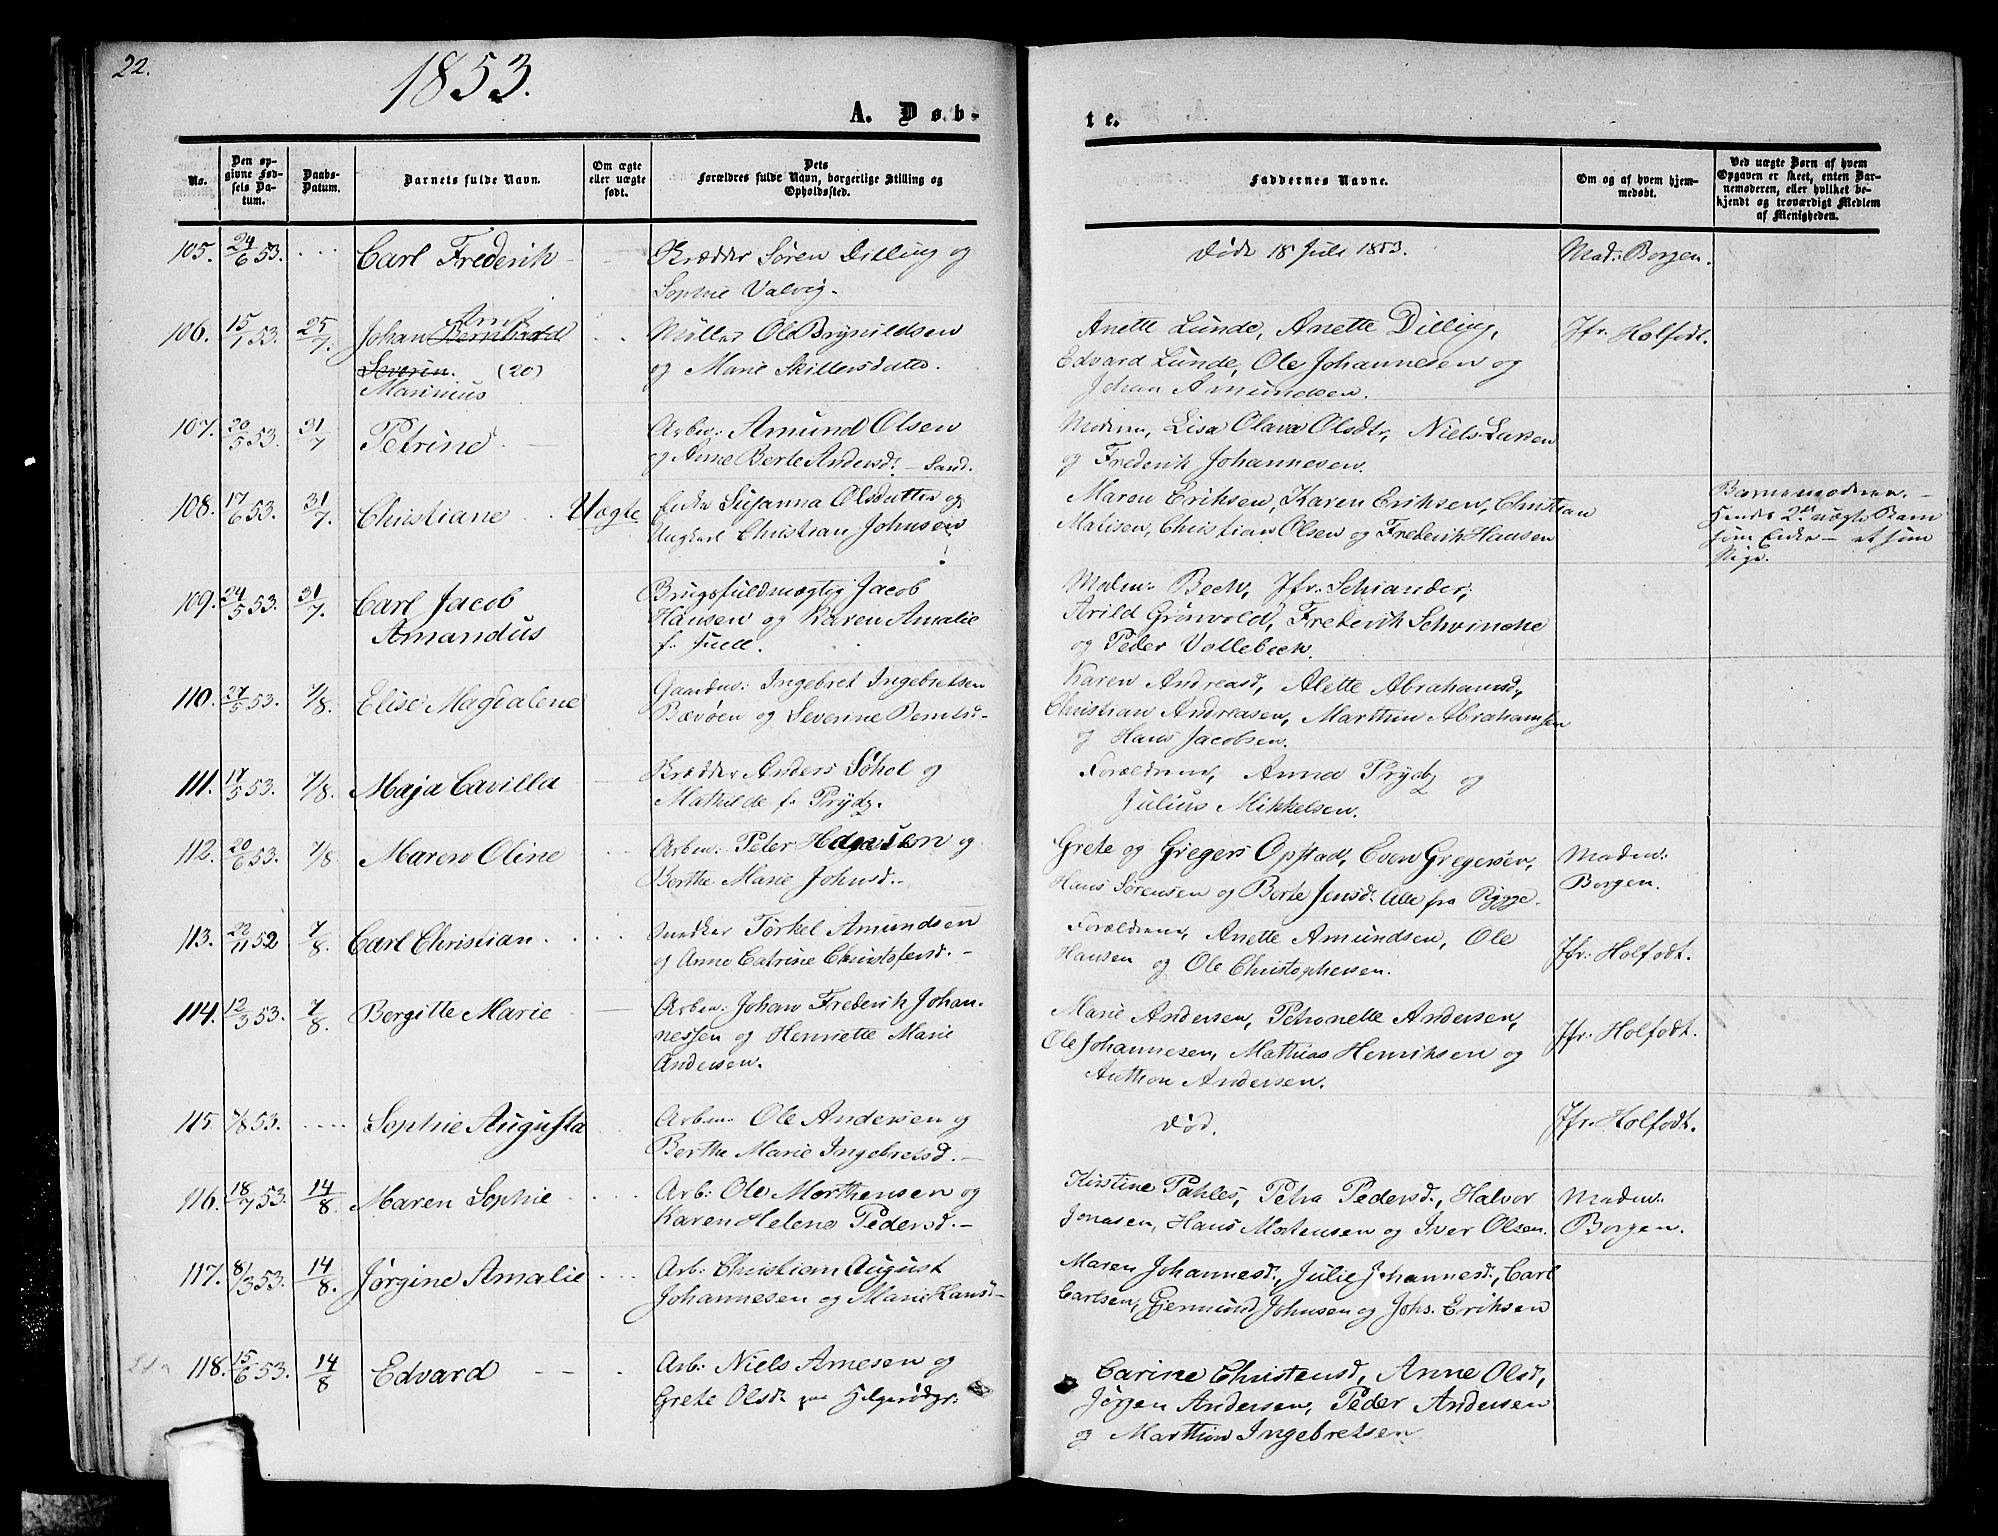 22.
1853.
A. Døb-
te.
No.
Den op-
givne Fød-
sels Da-
tum.
Daabs-
Datum.
Barnets fulde Navn.
Om ægte
eller uægte
født.
Dets
Forældres fulde Navn, borgerlige Stilling og
Opholdssted.
Faddernes Navne.
Om og af hvem hjem-
medøbt.
Ved uægte Børn af hvem
Opgaven er skeet, enten Bar-
nemoderen, eller hvilket be-
kjendt og troværdigt Medlem
af Menigheden.
105. 24/6 53. Carl Frederik
Skrædder Søren Dilling og
Sophie Valvig.
Døde 18 Juli 1853.
Mad: Borgen.
106. 15/1 53. 25/7. Johan Bernhard
Severin. (20)
Marinius
Møller Ole Brynildsen
og Marie Skillersdatter.
Anette Lunde, Anette Dilling,
Edvard Lunde, Ole Johannesen og
Johan Amundsen.
Jfr. Holfodt.
107. 20/5 53. 31/7 Petrine
Arbm: Amund Olsen
og Anne Berte Andersd. - Sand.
Moderen, Lisa Olava Olsdtr, Niels Larsen
og Frederik Johannesen.
108. 17/6 53. 31/7. Christiane Uægte
Enke Susanna Olsdatter og
Ungkarl Christian Johnsen
Maren Eriksen, Karen Eriksen, Christian
Matisen, Christian Olsen og Frederik Hansen
Barnemoderen. -
Hendes 2det uægte Barn
som Enke - et som
Pige.
109. 24/5 53. 31/7. Carl Jacob
Amandus
Brugsfuldmægtig Jacob
Hansen og Karen Amalie
f. Juell.
Madm: Beck, Jfr: Schiander,
Arild Grönvold, Frederik Schvincke
og Peder Vollebeck.
110. 27/5 53. 7/8. Elise Magdalene
Gaardm: Ingebret Ingebretsen
Bævöen og Severine Berntsd-
Karen Andreasd, Alette Abrahamsd,
Christian Andreasen, Marthin Abrahamsen
og Hans Jacobsen.
111. 17/5 53. 7/8. Maja Cavilla
Skrædder Anders Søhol og
Mathilde f. Prydz.
Forældrene, Anna Prydz og
Julius Mikkelsen.
112. 20/6 53. 7/8. Maren Oline
Arbm: Peter Hansen og
Berthe Marie Johnsd.
Grete og Gregers Opstad, Even Gregersen,
Hans Sørensen og Berte Jensd. Alle fra Rygge.
Madm:
Borgen.
113. 22/11 52 7/8 Carl Christian.
Snedker Törkel Amundsen
og Anne Catrine Christofersd.
Forældrene, Anette Amundsen, Ole
Hansen og Ole Christophersen.
Jfr: Holfodt.
114. 12/3 53. 7/8. Bergitte Marie
Arbm: Johan Frederik Johan-
nessen og Henriette Marie
Andersen.
Marie Andersen, Petronelle Andersen,
Ole Johannesen, Mathias Henriksen og
Anthon Andersen.
Jfr: Holfodt.
115. 7/8 53. Sophie Augusta
Arbm: Ole Andersen og
Berthe Marie Ingebretsd.
Død.
Jfr. Holfodt.
116. 18/7 53. 14/8. Maren Sophie
Arb: Ole Morthensen og
Karen Helene Pedersd.
Kirstine Pahles, Petra Pedersd., Halvor
Jonasen, Hans Mortensen og Iver Olsen.
Madm:
Borgen.
117. 8/3 53. 14/8. Jørgine Amalie
Arb: Christian August
Johannesen og Marie Hansd-
Maren Johannesd., Julie Johannesd., Carl
Carlsen, Gjermund Johnsen og Johs. Eriksen
118. 15/6 53. 14/8 Edvard
Arb: Niels Arnesen og
Grete Olsd.
Carine Christensd, Anne Olsd,
Jörgen Andersen, Peder Andersen
og Marthin Ingebretsen